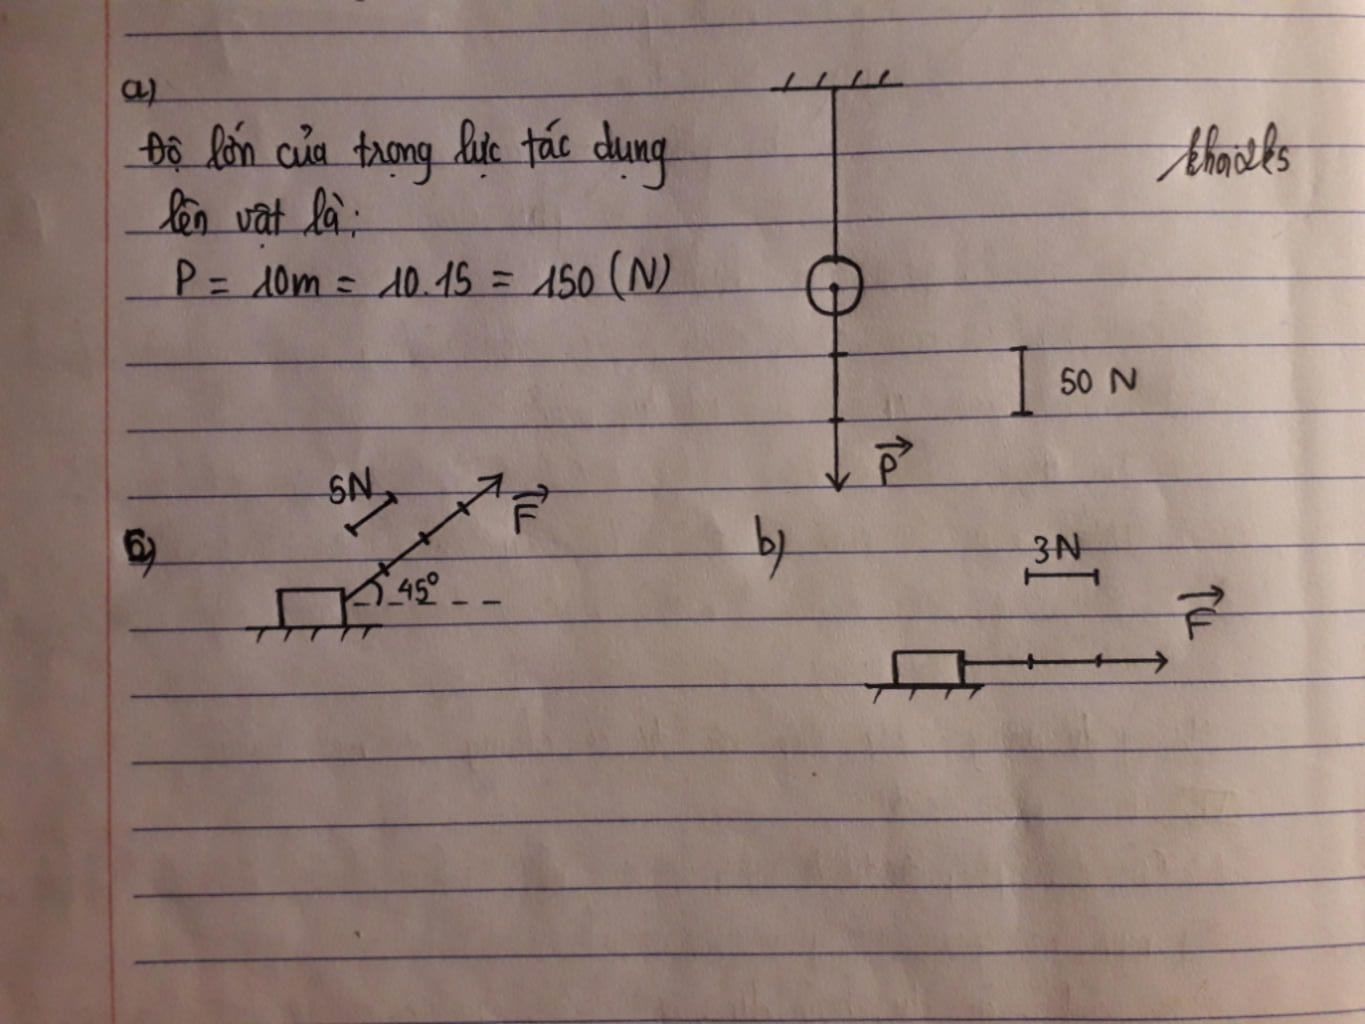 a)
Độ lớn của trọng lực tác dụng
lên vật là:
P = 10m = 10.15 = 150 (N)
khoi2k5
50 N
P
5N
F
45°
b)
3N
F